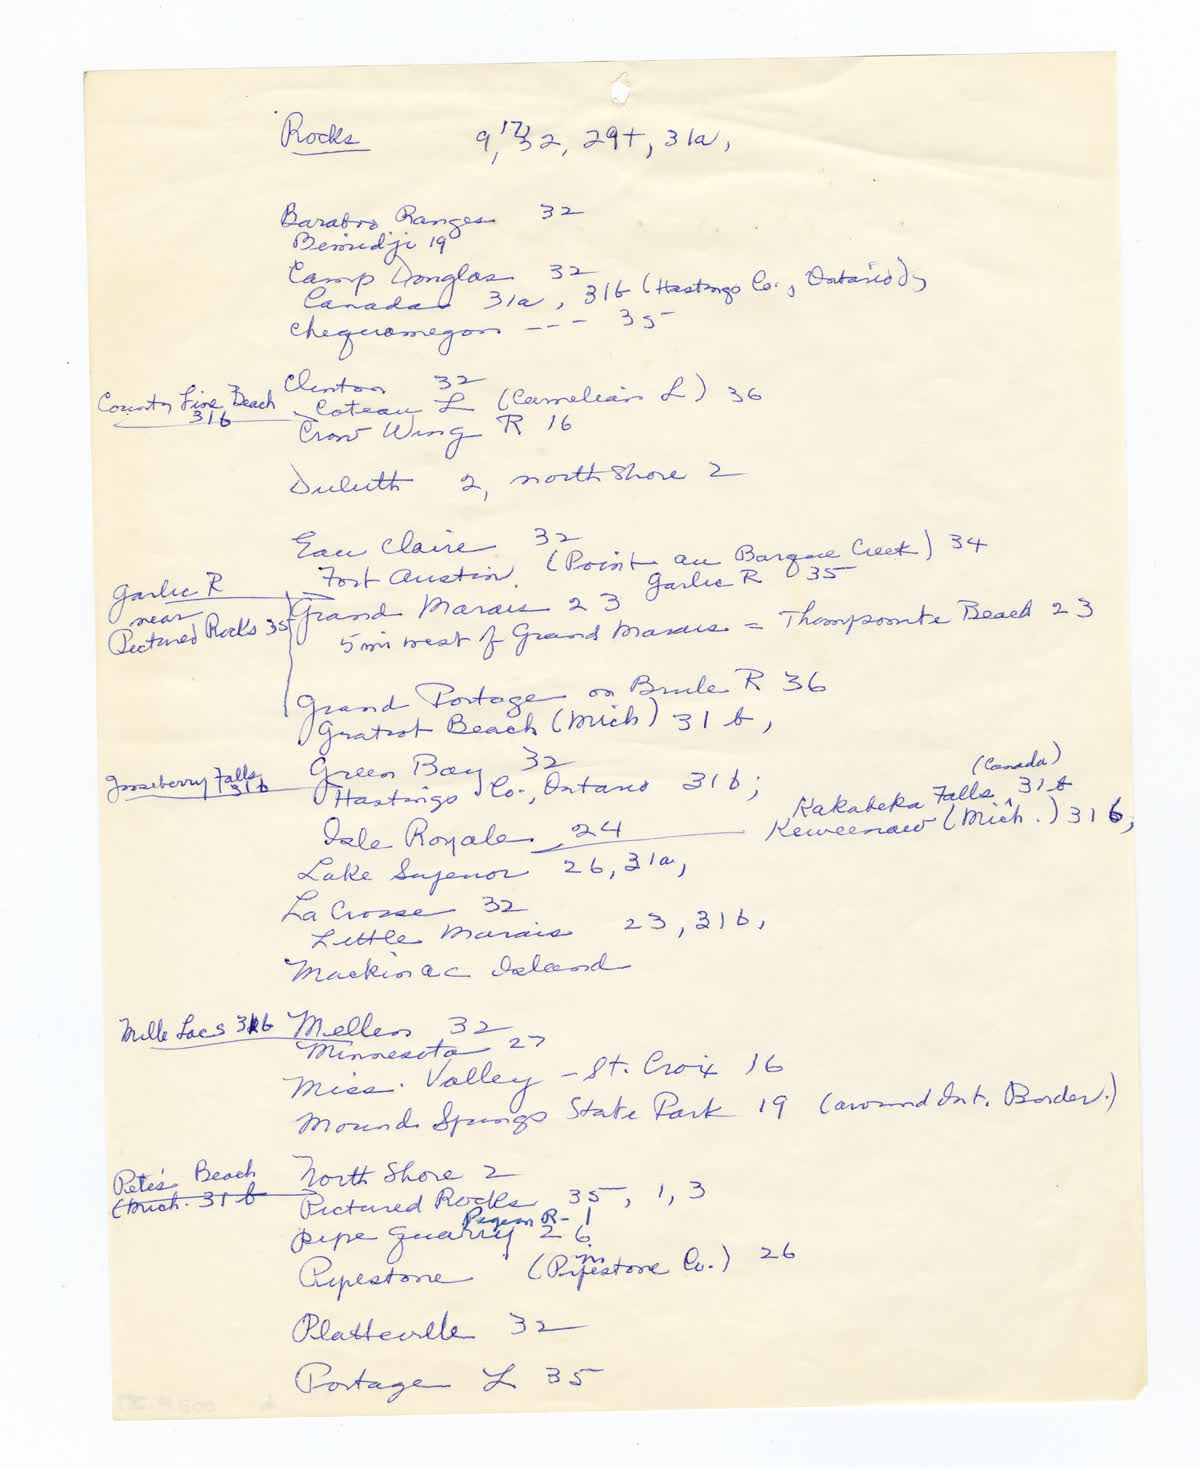 Rocks 9, 17, 32, 29+, 31a,
Baraboo Ranges 32
Bemidji 19
Camp Douglas 32
Canada 31a, 31b (Hastings Co., Ontario),
Chequamegon --- 35
Clinton 32
County Line Beach 31b
Coteau L (Carnelian L) 36
Crow Wing R 16
Duluth 2, north shore 2
Eau Claire 32
Fort Austin (Point au Barque Creek) 34
Garlic R near Pictured Rocks 35
Garlic R 35
Grand Marais 23
5 mi west of Grand Marais = Thompsonite Beach 23
Grand Portage on Brule R 36
Gratiot Beach (Mich) 31b,
Green Bay 32
Gooseberry Falls 31b
Hastings Co., Ontario 31b;
Isle Royale, 24
Kakabeka Falls (Canada) 31b
Keweenaw (Mich.) 31b,
Lake Superior 26, 31a,
La Crosse 32
Little Marais 23, 31b,
Mackinac Island
Mellen 32
Mille Lacs 31b
Minnesota 27
Miss. Valley - St. Croix 16
Mound Springs State Park 19 (around Int. Border.)
North Shore 2
Pete's Beach (Mich. 31b
Pictured Rocks 35, 1, 3
Pigeon R- 1
pipe quarry 26
Pipestone (Pipestone Co.) 26
Platteville 32
Portage L 35